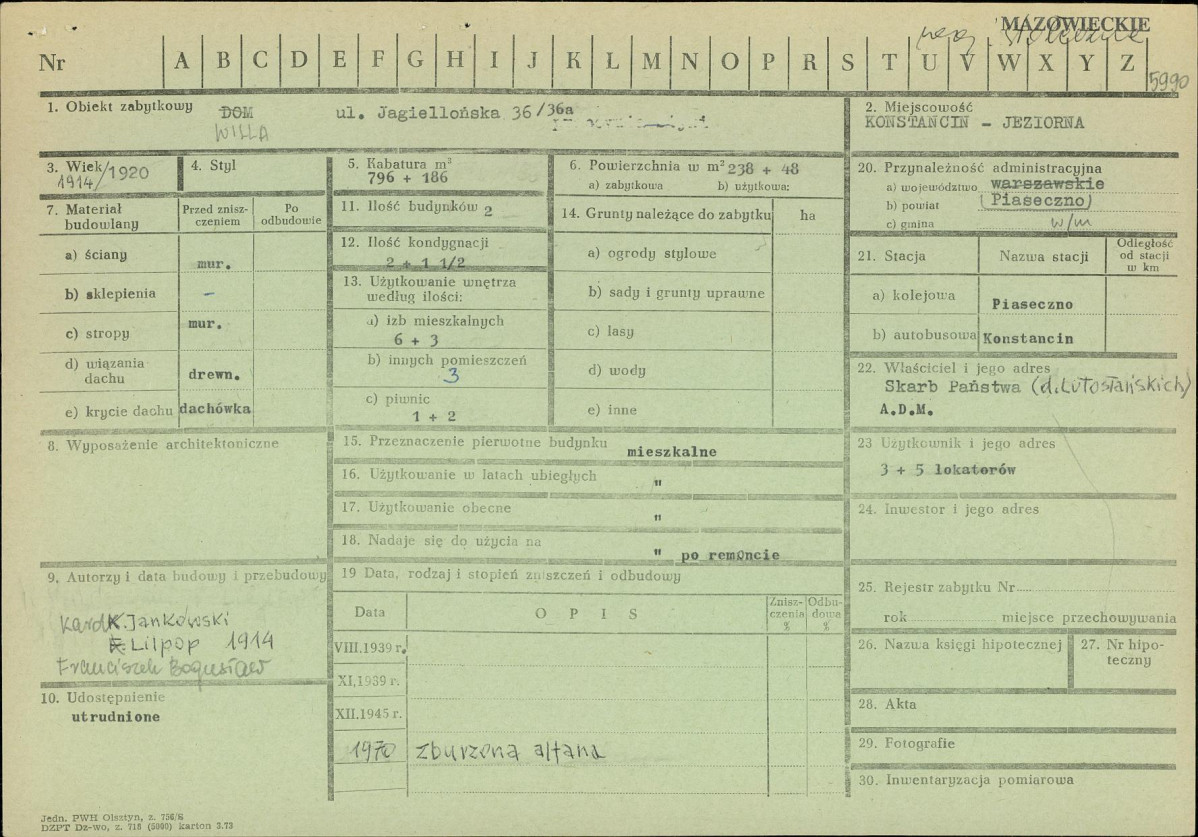 MAZOWIECKIE
woj. stołeczne
Nr A B C D E F G H I J K L M N O P R S T U V W X Y Z
5990
1. Obiekt zabytkowy DOM ul. Jagiellońska 36/36a
WILLA
2. Miejscowość
KONSTANCIN - JEZIORNA
3. Wiek /1920
1914
4. Styl
5. Kabatura m³
796 + 186
6. Powierzchnia w m² 238 + 48
a) zabytkowa b) użytkowa:
7. Materiał budowlany
Przed zniszczeniem
Po odbudowie
a) ściany mur.
b) sklepienia –
c) stropy mur.
d) wiązania dachu drewn.
e) krycie dachu dachówka
8. Wyposażenie architektoniczne
9. Autorzy i data budowy i przebudowy
Karol K. Jankowski
F. Lilpop 1914
Franciszek Bogusław
10. Udostępnienie
utrudnione
11. Ilość budynków 2
12. Ilość kondygnacji
2 + 1 1/2
13. Użytkowanie wnętrza
według ilości:
a) izb mieszkalnych
6 + 3
b) innych pomieszczeń
3
c) piwnic
1 + 2
14. Grunty należące do zabytku ha
a) ogrody stylowe
b) sady i grunty uprawne
c) lasy
d) wody
e) inne
15. Przeznaczenie pierwotne budynku mieszkalne
16. Użytkowanie w latach ubiegłych "
17. Użytkowanie obecne "
18. Nadaje się do użycia na " po remoncie
19 Data, rodzaj i stopień zniszczeń i odbudowy
Data O P I S Zniszczenia % Odbudowa %
VIII.1939 r.
XI.1939 r.
XII.1945 r.
1970 zburzona altana
20. Przynależność administracyjna
a) województwo warszawskie
b) powiat (Piaseczno)
c) gmina w/m
21. Stacja Nazwa stacji Odległość od stacji w km
a) kolejowa Piaseczno
b) autobusowa Konstancin
22. Właściciel i jego adres
Skarb Państwa (d. Lutosłańskich)
A.D.M.
23 Użytkownik i jego adres
3 + 5 lokatorów
24. Inwestor i jego adres
25. Rejestr zabytku Nr
rok miejsce przechowywania
26. Nazwa księgi hipotecznej
27. Nr hipoteczny
28. Akta
29. Fotografie
30. Inwentaryzacja pomiarowa
Jedn. PWH Olsztyn, z. 756/S
DZPT Dz-wo, z. 718 (5000) karton 3.73